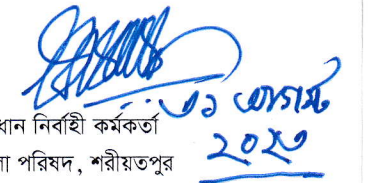 ৩১ আগস্ট
২০২৩
ধান নির্বাহী কর্মকর্তা
লা পরিষদ, শরীয়তপুর